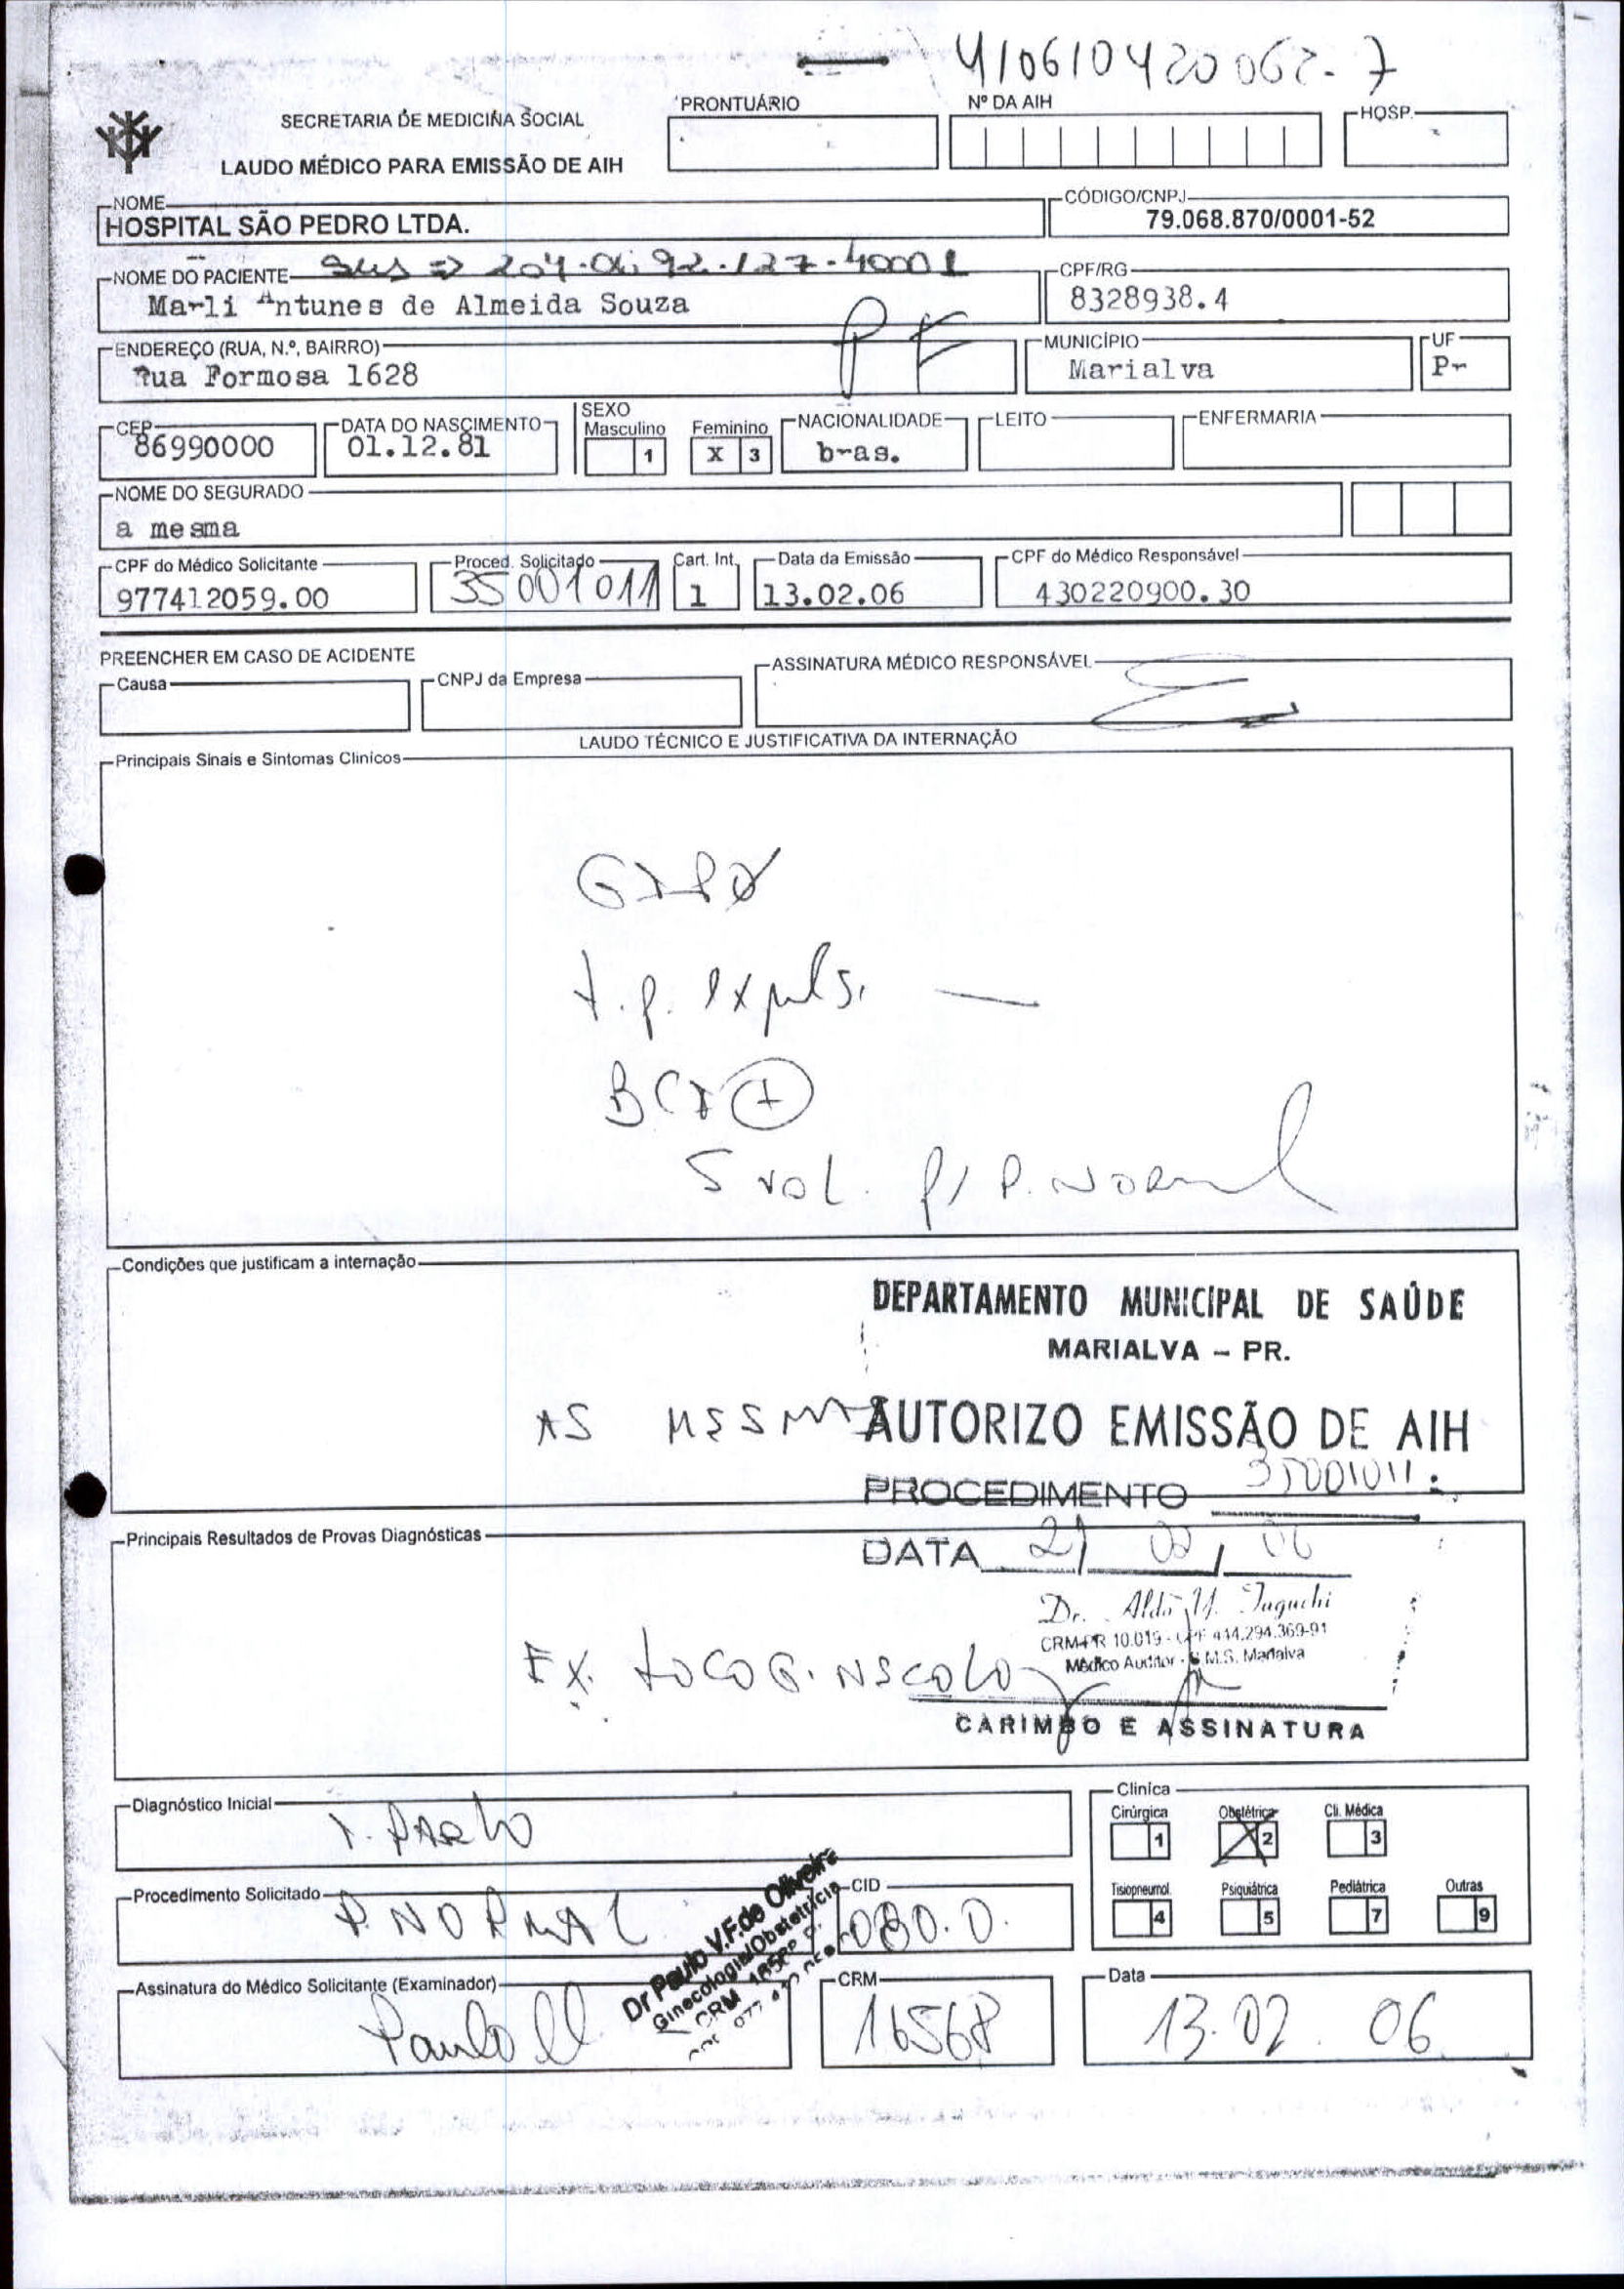 410610420062-7
SECRETARIA DE MEDICINA SOCIAL
LAUDO MÉDICO PARA EMISSÃO DE AIH
PRONTUÁRIO
Nº DA AIH
HOSP.
NOME
HOSPITAL SÃO PEDRO LTDA.
CÓDIGO/CNPJ
79.068.870/0001-52
NOME DO PACIENTE
Marli Antunes de Almeida Souza
CPF/RG
8328938.4
ENDEREÇO (RUA, N.º, BAIRRO)
Rua Formosa 1628
PF
MUNICÍPIO
Marialva
UF
Pr
CEP
86990000
DATA DO NASCIMENTO
01.12.81
SEXO
Masculino 1
Feminino X 3
NACIONALIDADE
bras.
LEITO
ENFERMARIA
NOME DO SEGURADO
a mesma
CPF do Médico Solicitante
977412059.00
Proced. Solicitado
35001011
Cart. Int.
1
Data da Emissão
13.02.06
CPF do Médico Responsável
430220900.30
PREENCHER EM CASO DE ACIDENTE
Causa
CNPJ da Empresa
ASSINATURA MÉDICO RESPONSÁVEL
LAUDO TÉCNICO E JUSTIFICATIVA DA INTERNAÇÃO
Principais Sinais e Sintomas Clínicos
t.p. expuls.
BCF +
p/ P. Normal
Condições que justificam a internação
DEPARTAMENTO MUNICIPAL DE SAÚDE
MARIALVA - PR.
AS MESMAS
AUTORIZO EMISSÃO DE AIH
PROCEDIMENTO 35001011
Principais Resultados de Provas Diagnósticas
DATA 21 02 06
Dr. Aldo Y. Taguchi
CRM-PR 10.019 - CPF 444.294.369-91
Médico Auditor - S.M.S. Marialva
EX. TOCOGINECOLO
CARIMBO E ASSINATURA
Diagnóstico Inicial
T. PARTO
Clínica
Cirúrgica 1
Obstétrica 2
Cli. Médica 3
Tisiopneumol. 4
Psiquiátrica 5
Pediátrica 7
Outras 9
Procedimento Solicitado
P. NORMAL
CID
080.0.
Dr Paulo V.F. de Oliveira
Ginecologia/Obstetrícia
Assinatura do Médico Solicitante (Examinador)
Paulo
CRM
16568
Data
13.02.06